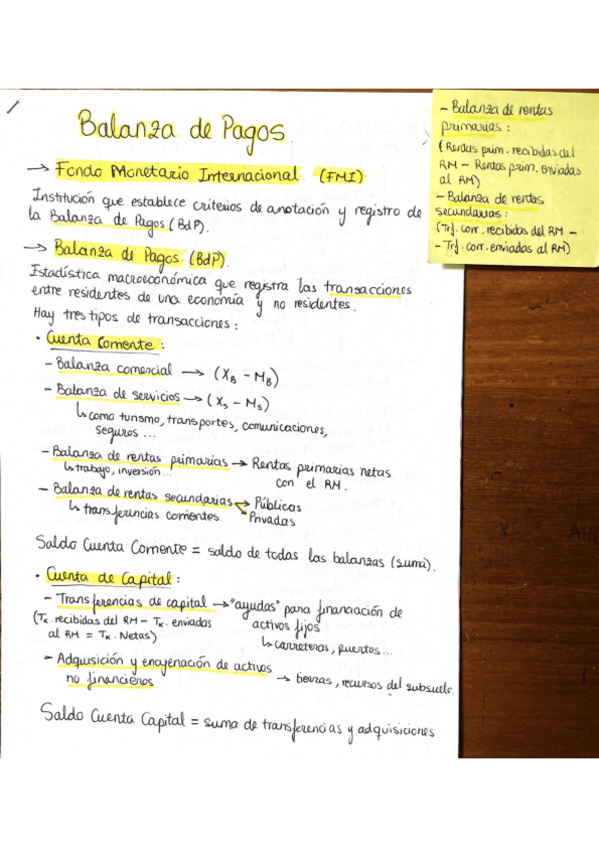 Balanza de Pagos.
→ Fondo Monetario Internacional. (FMI)
Institución que establece criterios de anotación y registro de
la Balanza de Pagos (BdP).
→ Balanza de Pagos (BdP).
Estadística macroeconómica que registra las transacciones
entre residentes de una economía y no residentes.
Hay tres tipos de transacciones:
• Cuenta Corriente:
- Balanza comercial → (X_B - M_B)
- Balanza de servicios → (X_S - M_S)
↳ como turismo, transportes, comunicaciones,
seguros ...
- Balanza de rentas primarias → Rentas primarias netas
↳ trabajo, inversión... con el RM.
- Balanza de rentas secundarias → Públicas
↳ transferencias corrientes. → Privadas
Saldo Cuenta Corriente = saldo de todas las balanzas (suma).
• Cuenta de Capital:
- Transferencias de capital → "ayudas" para financiación de
(Tk. recibidas del RM - Tk. enviadas activos fijos
al RM = Tk. Netas) ↳ carreteras, puertos...
- Adquisición y enajenación de activos
no financieros → tierras, recursos del subsuelo.
Saldo Cuenta Capital = suma de transferencias y adquisiciones
- Balanza de rentas
primarias:
(Rentas prim. recibidas del
RM - Rentas prim. enviadas
al RM)
- Balanza de rentas
secundarias:
(Trf. corr. recibidas del RM -
- Trf. corr. enviadas al RM)